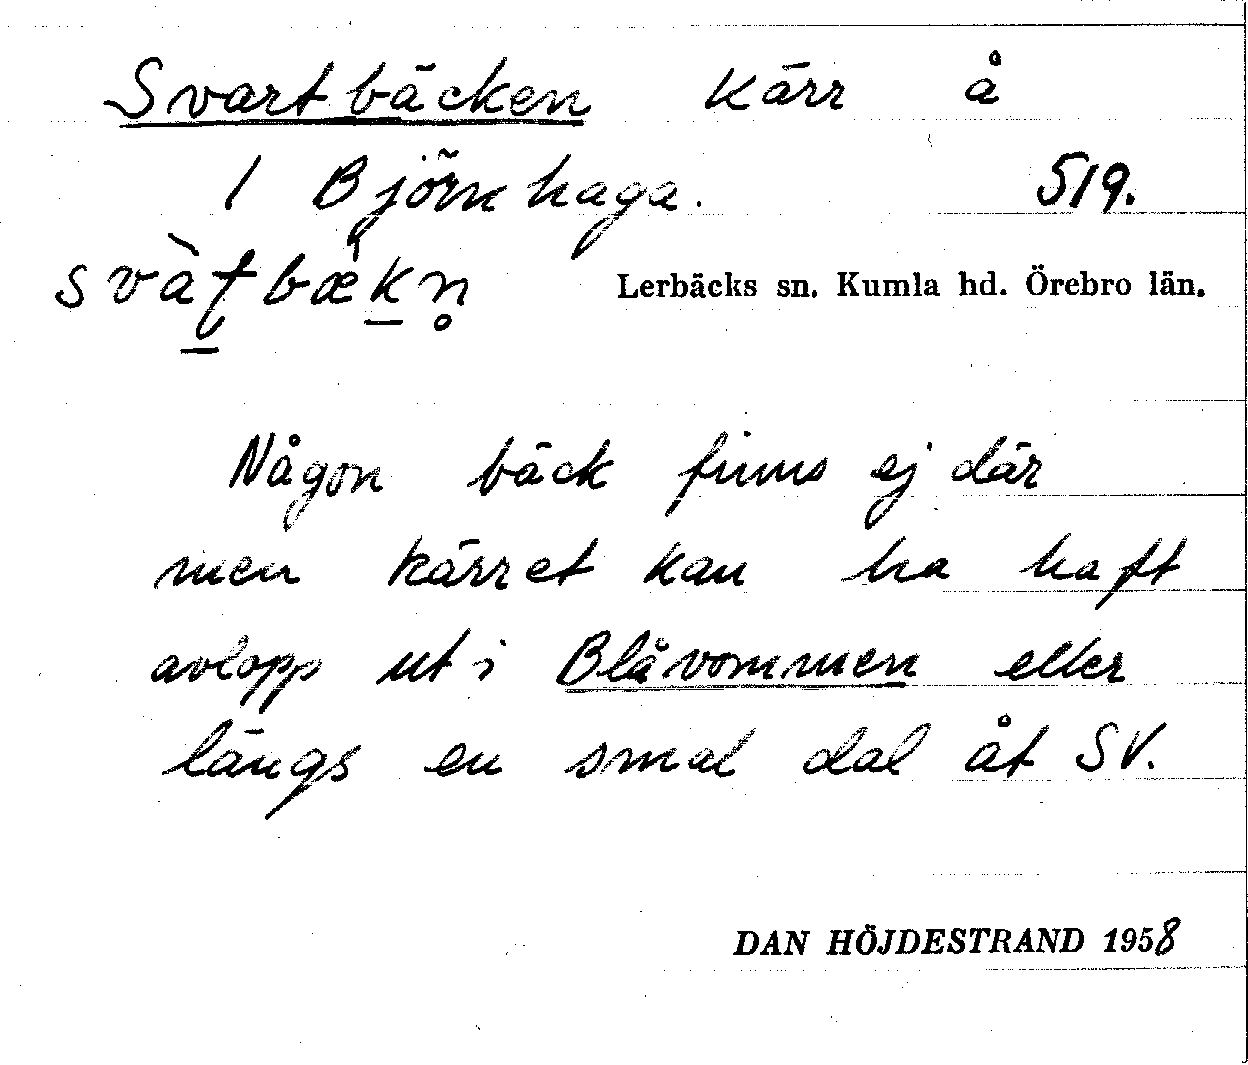 Svartbäcken kärr å
1 Björkhaga. 519.
svàt̠bæ̀k̠n̥
Lerbäcks sn. Kumla hd. Örebro län.
Någon bäck finns ej där
men kärret kan ha haft
avlopp ut i Blåvommen eller
längs en smal dal åt SV.
DAN HÖJDESTRAND 1958